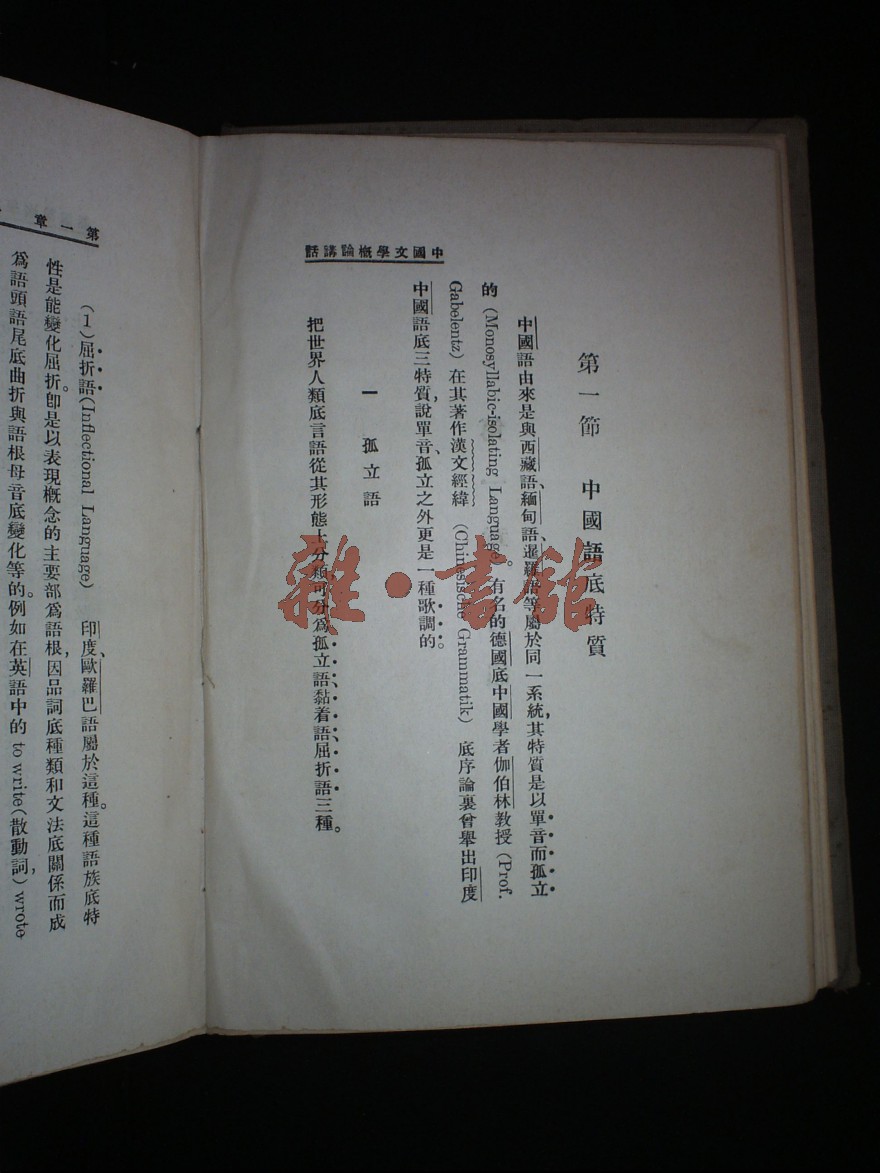 中國文學概論講話
第一節 中國語底特質
中國語由來是與西藏語、緬甸語、暹羅語等屬於同一系統,其特質是以單音而孤立
的 (Monosyllabic-isolating Language)。有名的德國底中國學者伽伯林教授 (Prof.
Gabelentz) 在其著作漢文經緯 (Chinesische Grammatik) 底序論裏曾舉出印度
中國語底三特質,說單音、孤立之外更是一種歌調的。
一 孤立語
把世界人類底言語從其形態上分類,可分爲孤立語、黏着語、屈折語三種。
第一章
(1)屈折語(Inflectional Language) 印度、歐羅巴語屬於這種。這種語族底特
性是能變化屈折。卽是以表現概念的主要部爲語根,因品詞底種類和文法底關係而成
爲語頭語尾底曲折與語根母音底變化等的。例如在英語中的 to write(散動詞),wrote
雜·書館